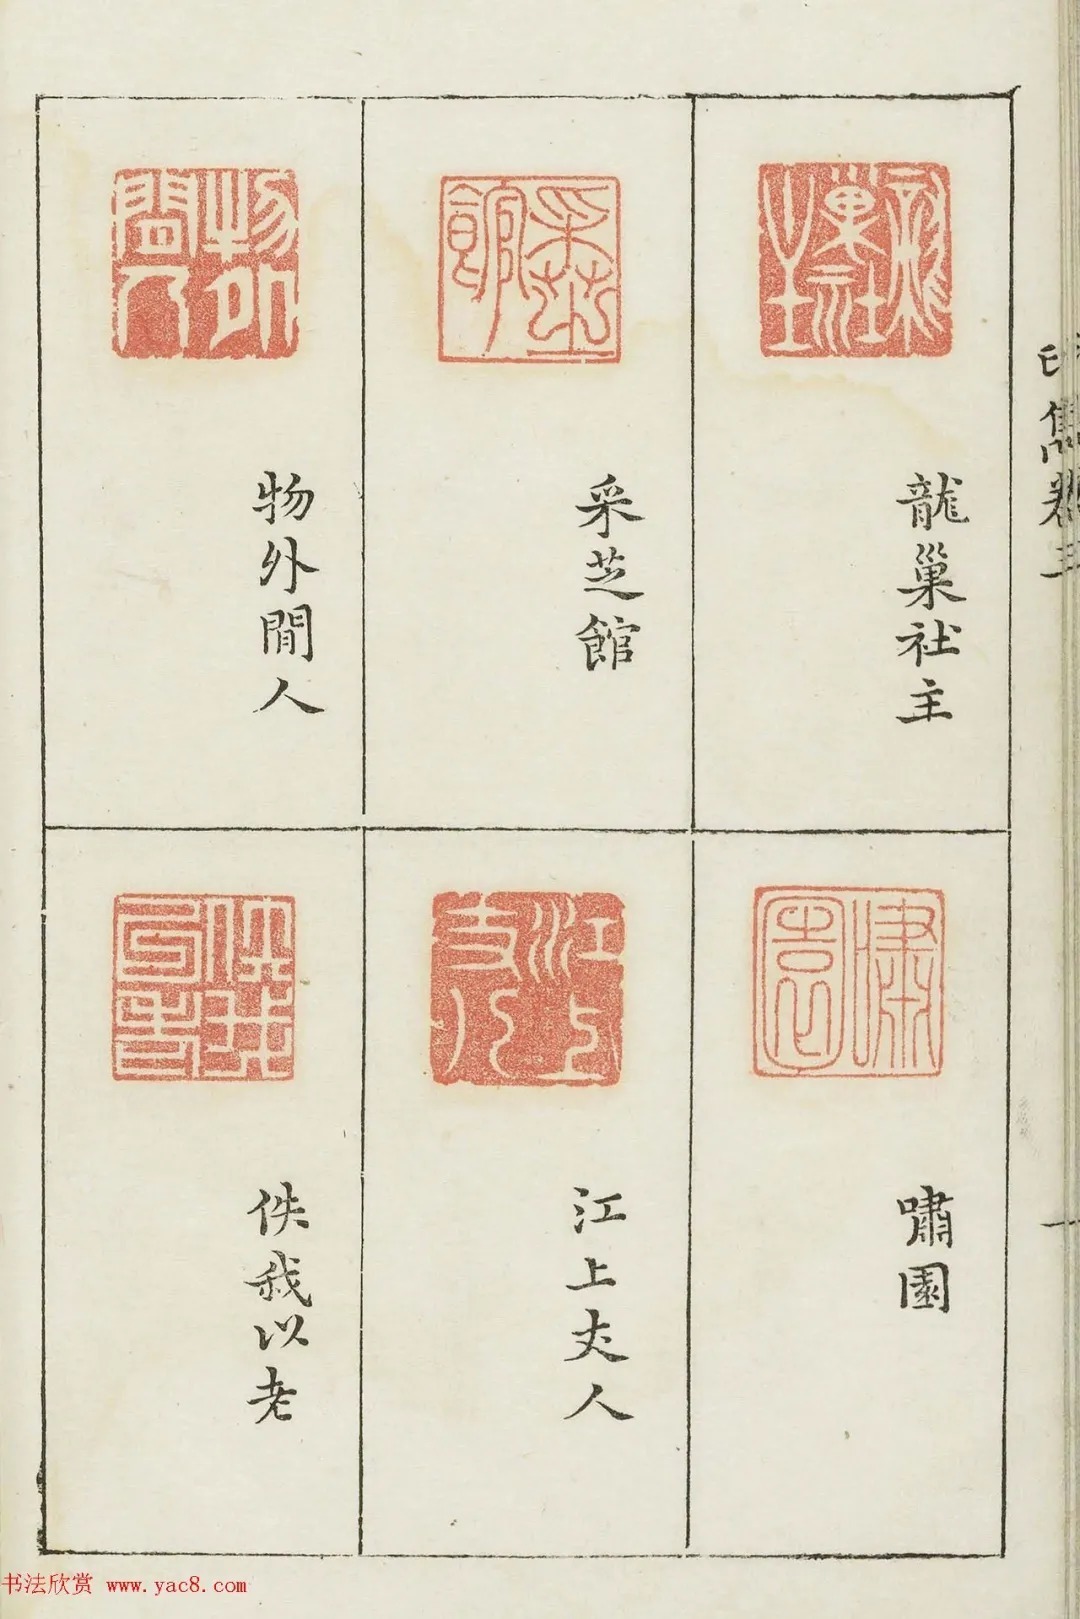 龍巢社主
采芝館
物外閒人
嘯園
江上丈人
佚我以老
印雋卷三
一
书法欣赏 www.yac8.com